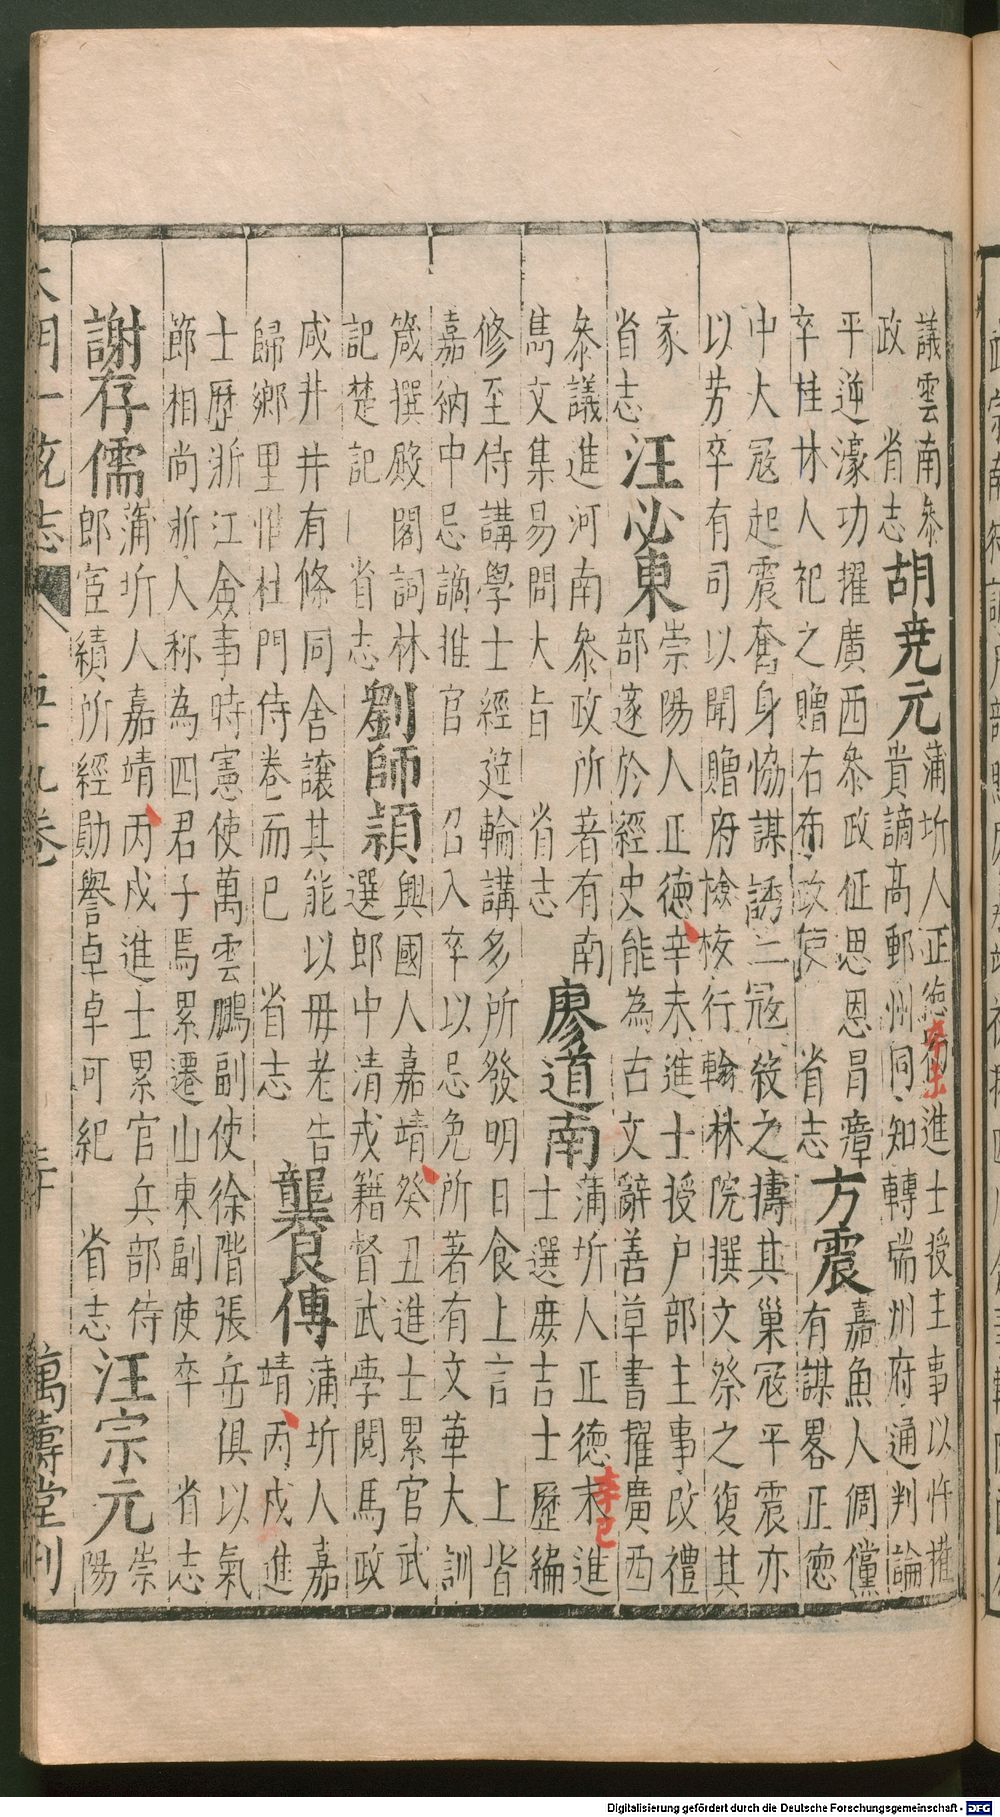 議雲南參
政　省志
胡尭元
蒲圻人正德進士授主事以忤權
辛未
貴謫高郵州同知轉瑞州府通判論
平逆濠功擢廣西參政征思恩冒瘴
卒桂林人祀之贈右布政使　省志
方震
嘉魚人倜儻
有謀畧正德
中大冦起震奮身協謀誘三冦殺之擣其巢冦平震亦
以劳卒有司以聞贈府檢校行翰林院撰文祭之復其
家
省志
汪必東
崇陽人正德辛未進士授户部主事改禮
部遂於經史能為古文辭善草書擢廣西
參議進河南參政所著有南
雋文集易問大旨　省志
廖道南
蒲圻人正德末進
辛巳
士選庻吉士歷編
修至侍講學士經筵輪講多所發明日食上言　上皆
嘉納中忌謫推官　召入卒以忌免所著有文華大訓
箴撰殿閣詞林
記楚記　省志
劉師穎
興國人嘉靖癸丑進士累官武
選郎中清戎籍督武學閱馬政
咸井井有條同舍譲其能以毋老告
歸鄉里惟杜門侍养而已　省志
龔良傅
蒲圻人嘉
靖丙戍進
士歷浙江僉事時憲使萬雲鵬副使徐階張岳俱以氣
節相尚浙人称為四君子焉累遷山東副使卒　省志
謝存儒
蒲圻人嘉靖丙戍進士累官兵部侍
郎宦績所經勛譽卓卓可紀　省志
汪宗元
崇
陽
大明一統志　五十九卷　萬壽堂刊
Digitalisierung gefördert durch die Deutsche Forschungsgemeinschaft - DFG